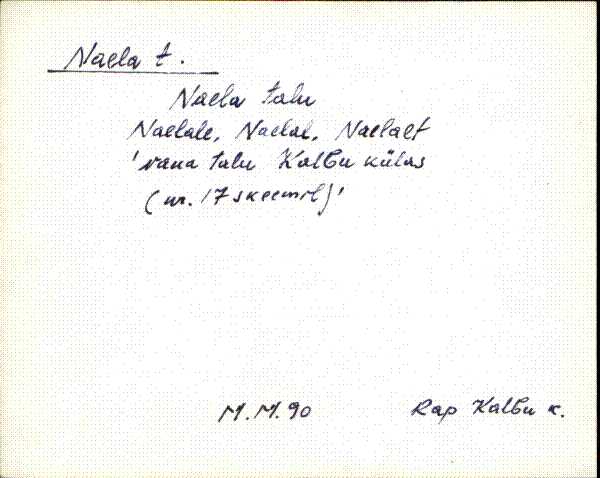 Naela t.
Naela talu
Naelale, Naelal, Naelalt
'vana talu Kalbu külas
(nr. 17 skeemil)'
M.M.90 Rap Kalbu k.